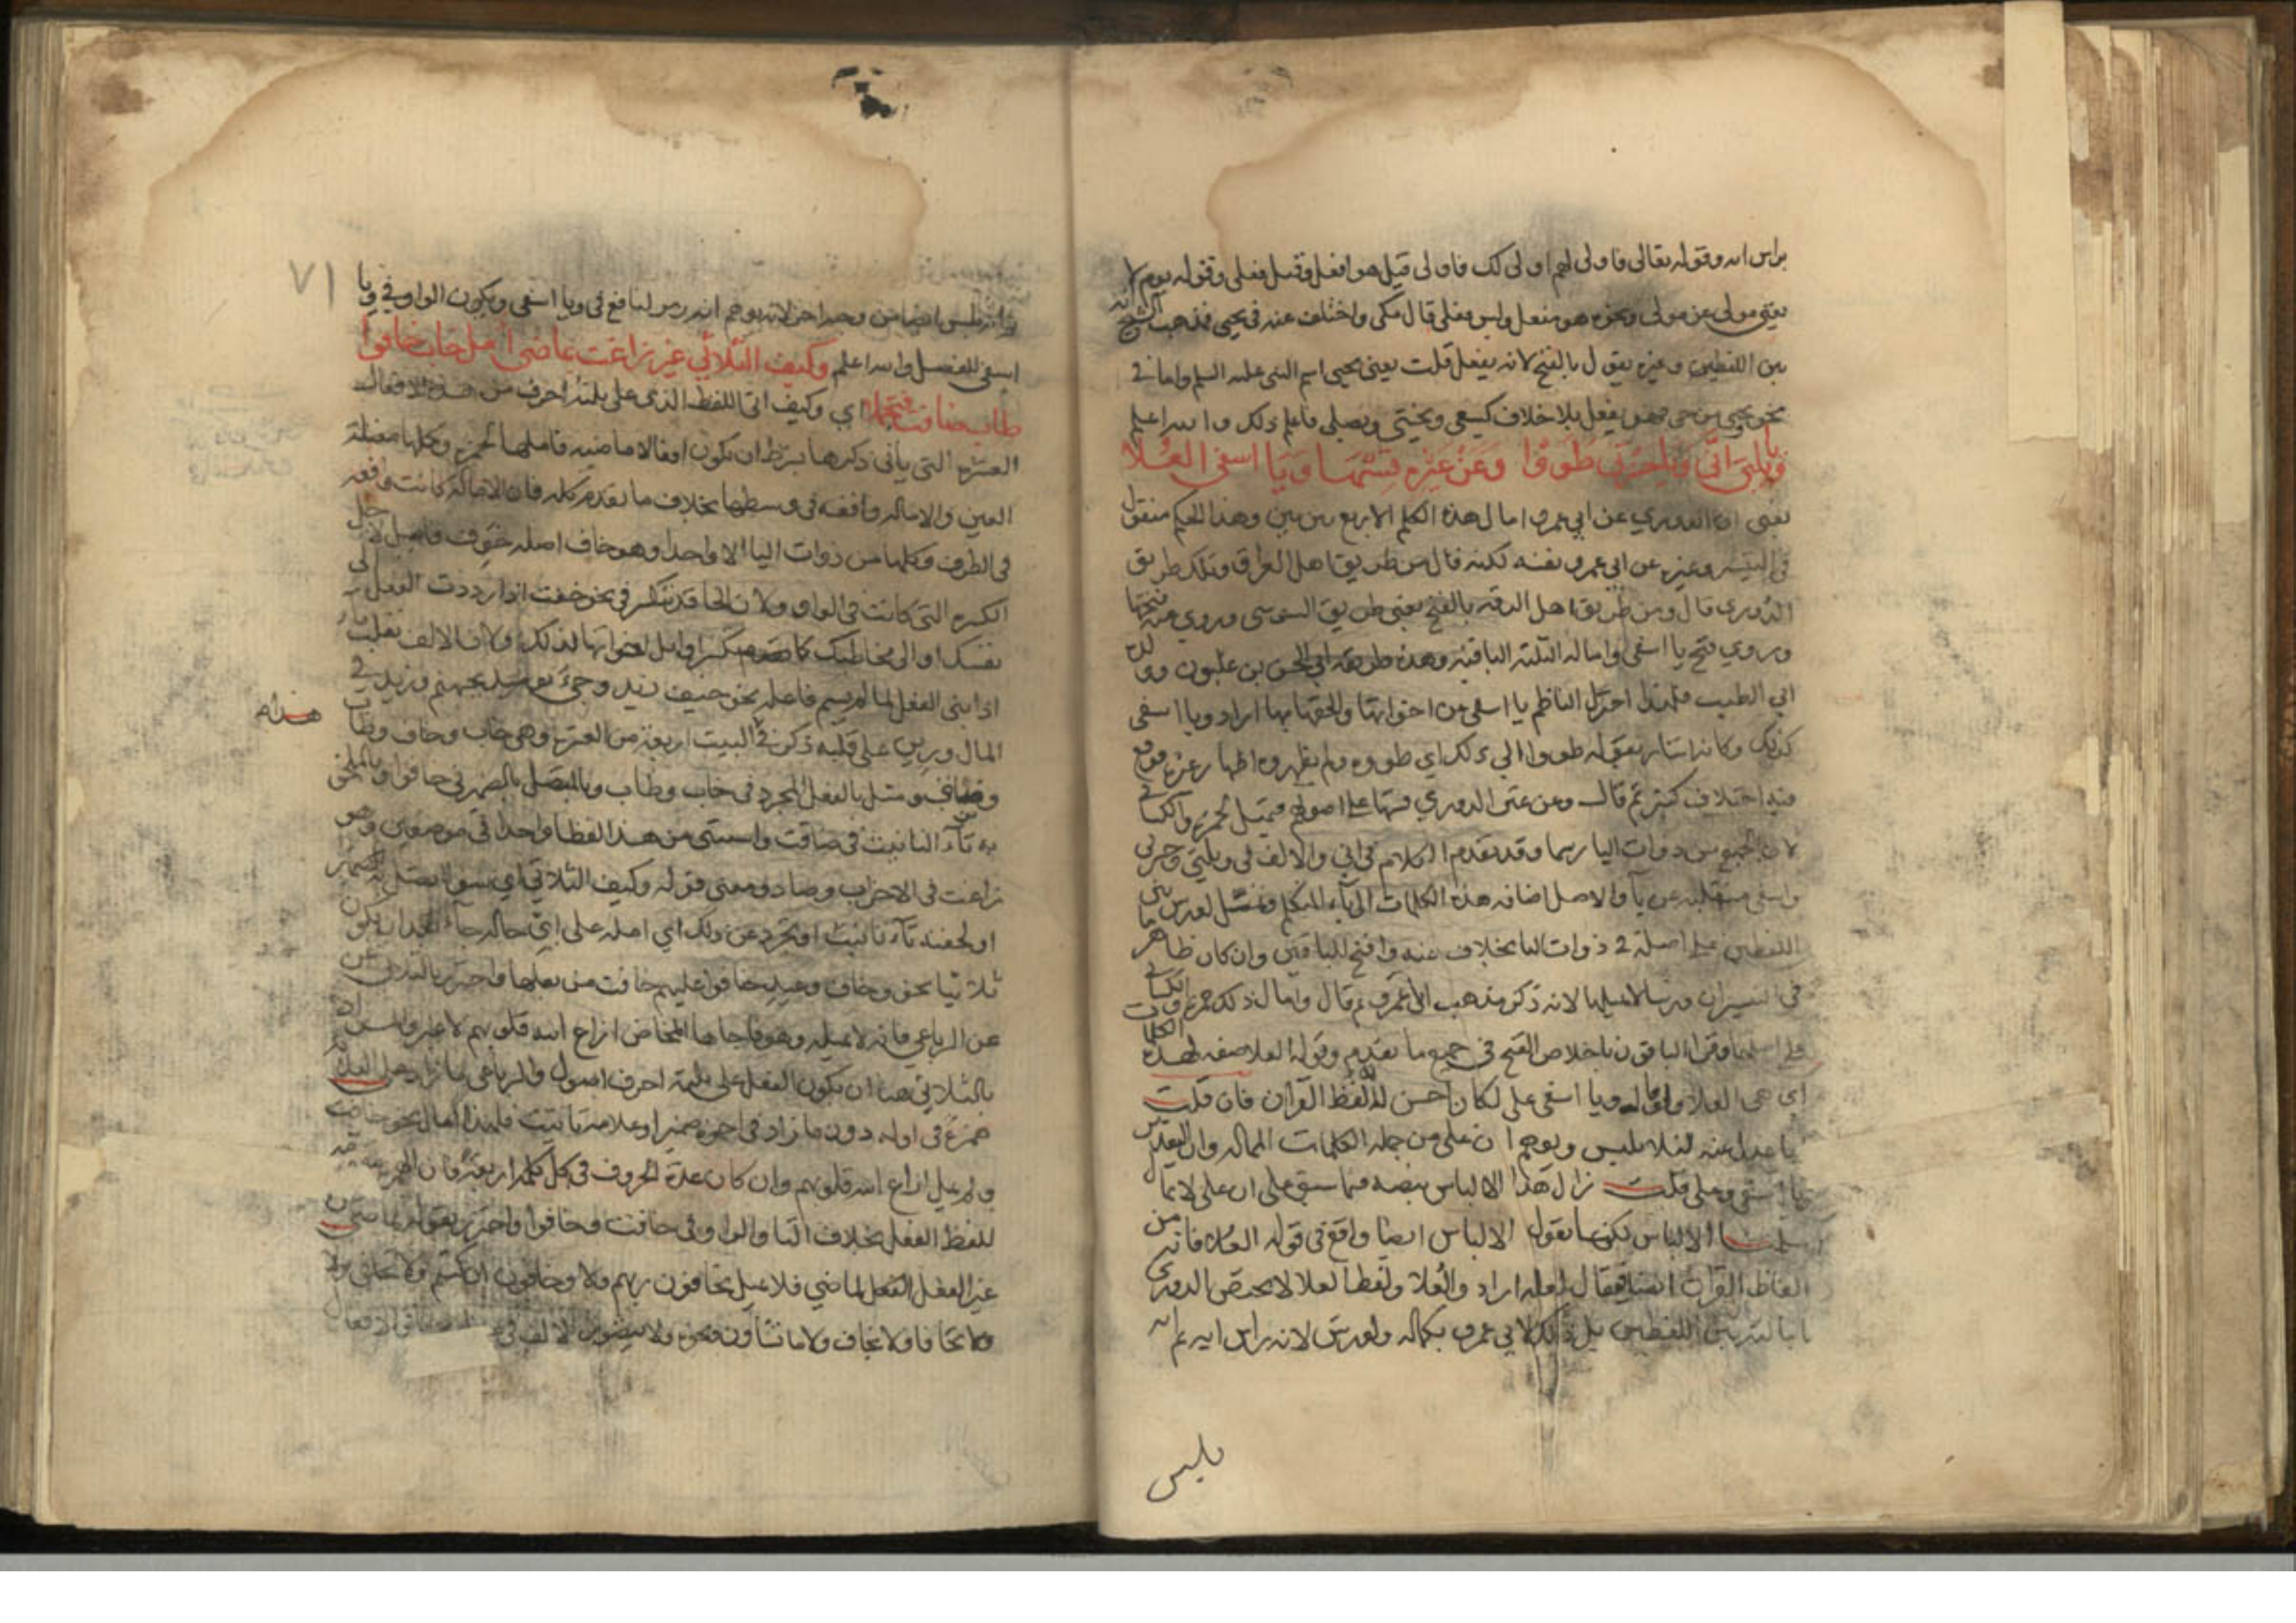 براس ايه وقوله تعالى فاولى لهم اولى لك فاولى قيل هو افعل وقيل فعلى وقوله يوم لا
يغني مولى عن مولى ونحوه هو مفعل وليس مفعلى قال مكى واختلف عنه في يحيى فمذهب الشيخ انه
بين اللفظين وغيره يقول بالفتح لانه يفعل قلت يعني يحيى اسم النبي عليه السلم واما في
نحو ويحيى من حى فهو يفعل بلا خلاف كيسعى ويخشى ويصلى فاعلم ذلك والله اعلم
ويا ويلتى انى ويا حسرتى طووا وعن غيره قسها ويا اسفى العلا
يعني ان الدوري عن ابي عمرو امال هذه الكلم الاربع بين بين وهذا الحكم منقول
في التيسير وغيره عن ابي عمرو نفسه لكنه قال من طريق اهل العراق وتلك طريق
الدوري قال ومن طريق اهل الرقة بالفتح يعني طريق السوسى وروي عنه فتحها
وروي فتح يا اسفى وامالة الثلثة الباقية وهذه طريقة ابي الحسن بن غلبون وولده
ابي الطيب فلهذا اخزل الناظم يا اسفى عن اخواتها والحقها بها اراد ويا اسفى
كذلك وكانه اشار بقوله طووا الى ذلك اي طووه ولم يظهروه اظهار غيره فوقع
فيه اختلاف كثير ثم قال وعن غير الدوري قسها على اصولهم فتميل لحمزة والكسا
لان الجميع من ذوات اليا رسما وقد تقدم الكلام في انى والالف في ويلتى وحسرتى
واسفى منقلبة عن يا والاصل اضافة هذه الكلمات الى ياء المتكلم وتميل لورش بين
اللفظين على اصله في ذوات اليا بخلاف عنه وافتح للباقين وان كان ظاهر ما
في التيسير ان ورشا لا يميلها لانه ذكر مذهب ابي عمرو ثم قال وامال ذلك حمزة والكسائي
على اصلهما وقرا الباقون باخلاص الفتح في جميع ما تقدم وقوله العلا صفة لهذه الكلمات
اي هي العلا ولو قال ويا اسفى على لكان احسن لانه لفظ القران فان قلت
ما عدل عنه لئلا يلبس ويوهم ان على من جملة الكلمات الممالة وان التقدير
يا اسفى وعلى قلت زال هذا الالباس بنصه فيما سبق على ان على لا تمال
سلمنا الالباس لكنا نقول الالباس ايضا واقع في قوله العلا فانه من
الفاظ القران ايضا فيقال لعله اراد والعلا ولفظ العلا لا يختص الدوري
بامالته بين اللفظين بل ذلك لابي عمرو بكماله ولورش لانه راس ايه ثم انه
يلبس
٧١
ايضا من وجه اخر لانه يوهم انه رمز لنافع في ويا اسفى ويكون الواو في ويا
اسفى للفصل والله اعلم وكيف الثلاثي غير زاغت بماضي امل خاب خافوا
طاب ضاقت فتجملا اي وكيف اتى اللفظ الذي على ثلثة احرف من هذه الافعال
العشرة التي ياتي ذكرها بشرط ان تكون افعالا ماضية فاملها لحمزة وكلها معتلة
العين والامالة واقعة في وسطها بخلاف ما تقدم كله فان الامالة كانت واقعة
في الطرف وكلها من ذوات اليا الا واحدا وهو خاف اصله خوف فاميل لاجل
الكسرة التي كانت في الواو ولان الخا قد تنكسر في نحو خفت اذا رددت الفعل الى
نفسك او الى مخاطبك كما تكسر اوائل اخواتها لذلك ولان الالف تقلب ياء
اذا بنى الفعل لما لم يسم فاعله نحو خيف زيد وجيء يومئذ بجهنم وزيد في
المال ورين على قلبه ذكر في هذا البيت اربعة من العشرة وهي خاب وخاف وطاب
وضاق ومثل بالفعل المجرد في خاب وطاب وبالمتصل بالضمير في خافوا وبالملحق
به تاء التانيث في ضاقت واستثنى من هذا لفظا واحدا في موضعين وهو
زاغت في الاحزاب وصاد ومعنى قوله وكيف الثلاثي اي سوا اتصل به ضمير
او لحقته تاء تانيث او تجرد عن ذلك اي امله على اي حالة جاء بعد ان يكون
ثلاثيا نحو وخاف وعيد خافوا عليهم خافت من بعلها واحترز بالثلاثي عن
عن الرباعي فانه لا يميله وهو فاجاءها المخاض ازاغ الله قلوبهم لا غير والمراد
بالثلاثي هنا ان يكون الفعل على ثلثة احرف اصول والرباعي ما زاد على الثلاثة
همزة في اوله دون ما زاد في اخره ضمير او علامة تانيث فلهذا امال نحو خافت
ولم يمل ازاغ الله قلوبهم وان كان عدة الحروف في كل كلمة اربعة فان الهمزة
للفظ الفعل بخلاف التا والواو في خافت وخافوا واحترز بقوله بماضي عن
غير الفعل الماضي فلا يميل يخافون ربهم ولا وخافون ان كنتم ولا تخافي ولا
ولا تخافا ولا يخاف ولا ما تشاؤن ونحوه